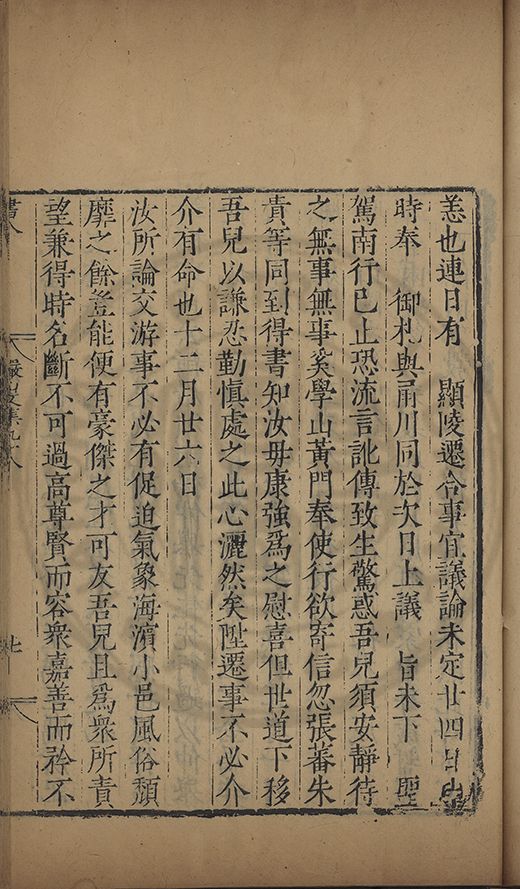 恙也連日有　顯陵遷合事宜議論未定廿四日申
時奉　御札與甬川同於次日上議　旨未下　聖
駕南行已止恐流言訛傳致生驚惑吾兒須安靜待
之無事無事奚學山黃門奉使行欲寄信忽張蕃朱
貴等同到得書知汝毋康強爲之慰喜但世道下移
吾兒以謙忍勤慎處之此心灑然矣陞遷事不必介
介有命也十二月廿六日
汝所論交游事不必有促迫氣象海濵小邑風俗頽
靡之餘豈能便有豪傑之才可友吾兒且爲衆所責
望兼得時名斷不可過高尊賢而容衆嘉善而矜不
書八
七